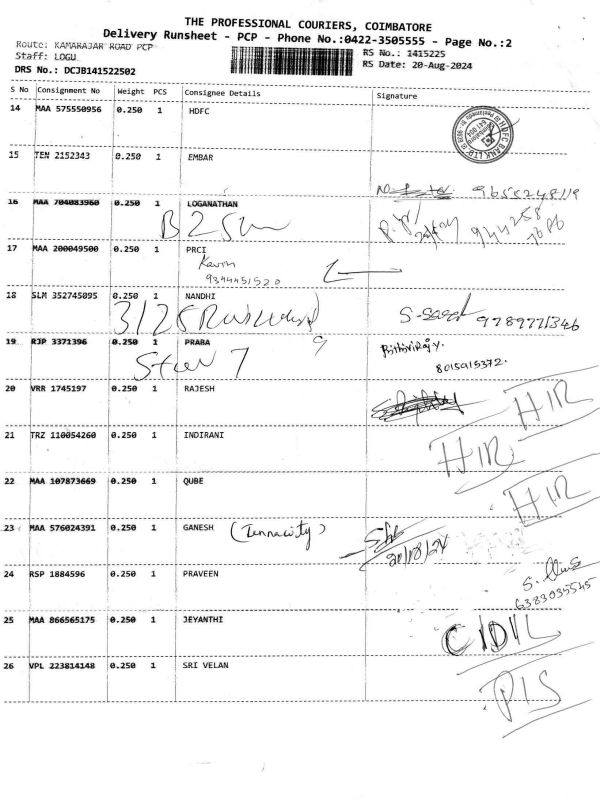 THE PROFESSIONAL COURIERS, COIMBATORE
Delivery Runsheet - PCP - Phone No.:0422-3505555 - Page No.:2
Route: KAMARAJAR ROAD PCP
RS No.: 1415225
Staff: LOGU
RS Date: 20-Aug-2024
DRS No.: DCJB141522502
S No Consignment No Weight PCS Consignee Details Signature
14 MAA 575550956 0.250 1 HDFC
HDFC BANK LTD
15 TEN 2152343 0.250 1 EMBAR
9655248119
16 MAA 704083960 0.250 1 LOGANATHAN
17 MAA 200049500 0.250 1 PRCI
Kavin
9344451520
18 SLM 352745095 0.250 1 NANDHI
9789771346
19 RJP 3371396 0.250 1 PRABA
Prithiviraj
8015915372.
20 VRR 1745197 0.250 1 RAJESH
HIR
21 TRZ 110054260 0.250 1 INDIRANI
HIR
22 MAA 107873669 0.250 1 QUBE
HIR
23 MAA 576024391 0.250 1 GANESH (Tennacity)
20/08/24
24 RSP 1884596 0.250 1 PRAVEEN
6383035545
25 MAA 866565175 0.250 1 JEYANTHI
26 VPL 223814148 0.250 1 SRI VELAN